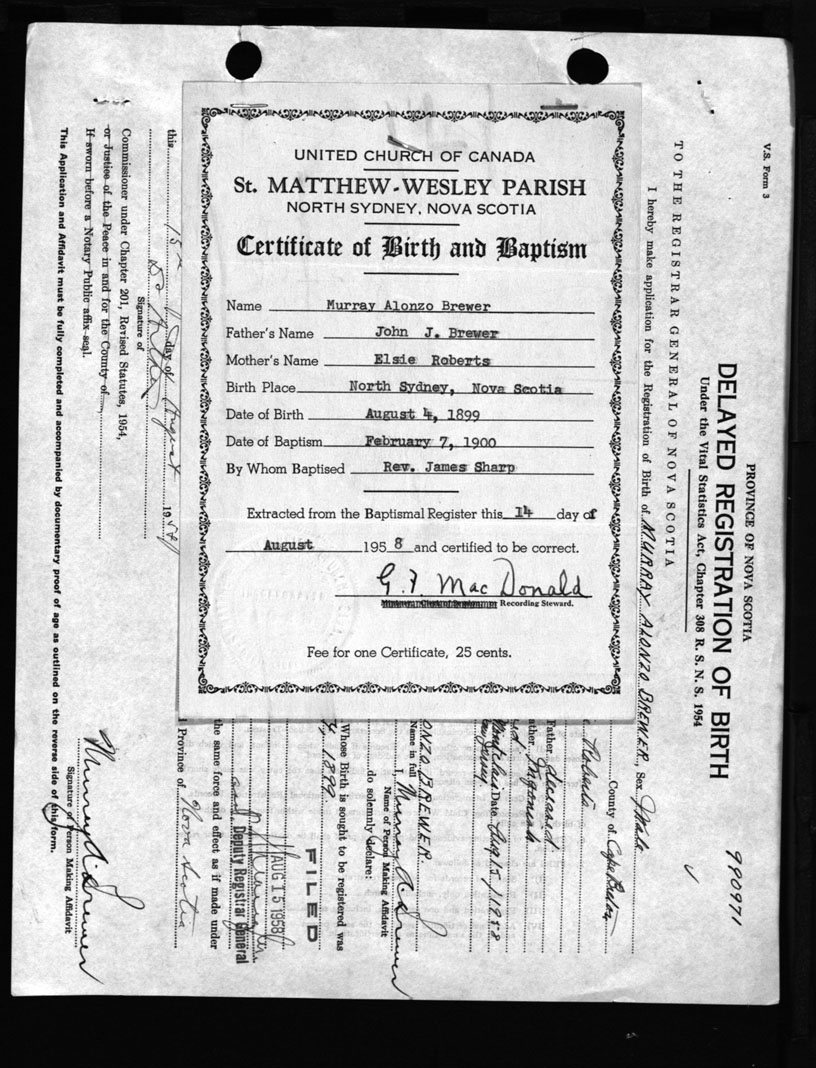 UNITED CHURCH OF CANADA
St. MATTHEW-WESLEY PARISH
NORTH SYDNEY, NOVA SCOTIA
Certificate of Birth and Baptism
Name Murray Alonzo Brewer
Father's Name John J. Brewer
Mother's Name Elsie Roberts
Birth Place North Sydney, Nova Scotia
Date of Birth August 4, 1899
Date of Baptism February 7, 1900
By Whom Baptised Rev. James Sharp
Extracted from the Baptismal Register this 14 day of
August 1958 and certified to be correct.
G. F. MacDonald
Recording Steward.
Fee for one Certificate, 25 cents.
V.S. Form 3
PROVINCE OF NOVA SCOTIA
DELAYED REGISTRATION OF BIRTH
Under the Vital Statistics Act, Chapter 308 R. S. N. S. 1954
990971
TO THE REGISTRAR GENERAL OF NOVA SCOTIA
I hereby make application for the Registration of Birth of MURRAY ALONZO BREWER, Sex Male
County of Cape Breton
Roberts
Father deceased
ather Ingonish
Date Aug 15/1958
Jersey
ONZO BREWER.
Name in full
I, Murray A. Brewer
Name of Person Making Affidavit
do solemnly declare:
Whose Birth is sought to be registered was
4, 1899.
FILED
AUG 15 1958
Deputy Registrar General
the same force and effect as if made under
Province of Nova Scotia
this 15th day of August 1958
Signature of
Commissioner under Chapter 201, Revised Statutes, 1954,
or Justice of the Peace in and for the County of
If sworn before a Notary Public affix seal.
Murray A. Brewer
Signature of Person Making Affidavit
This Application and Affidavit must be fully completed and accompanied by documentary proof of age as outlined on the reverse side of this form.